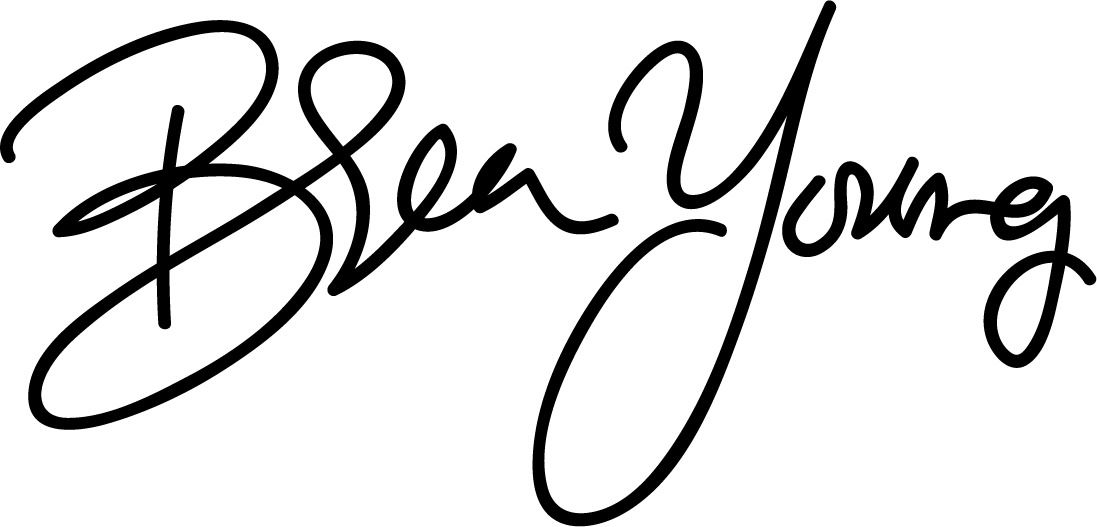 Ben Young